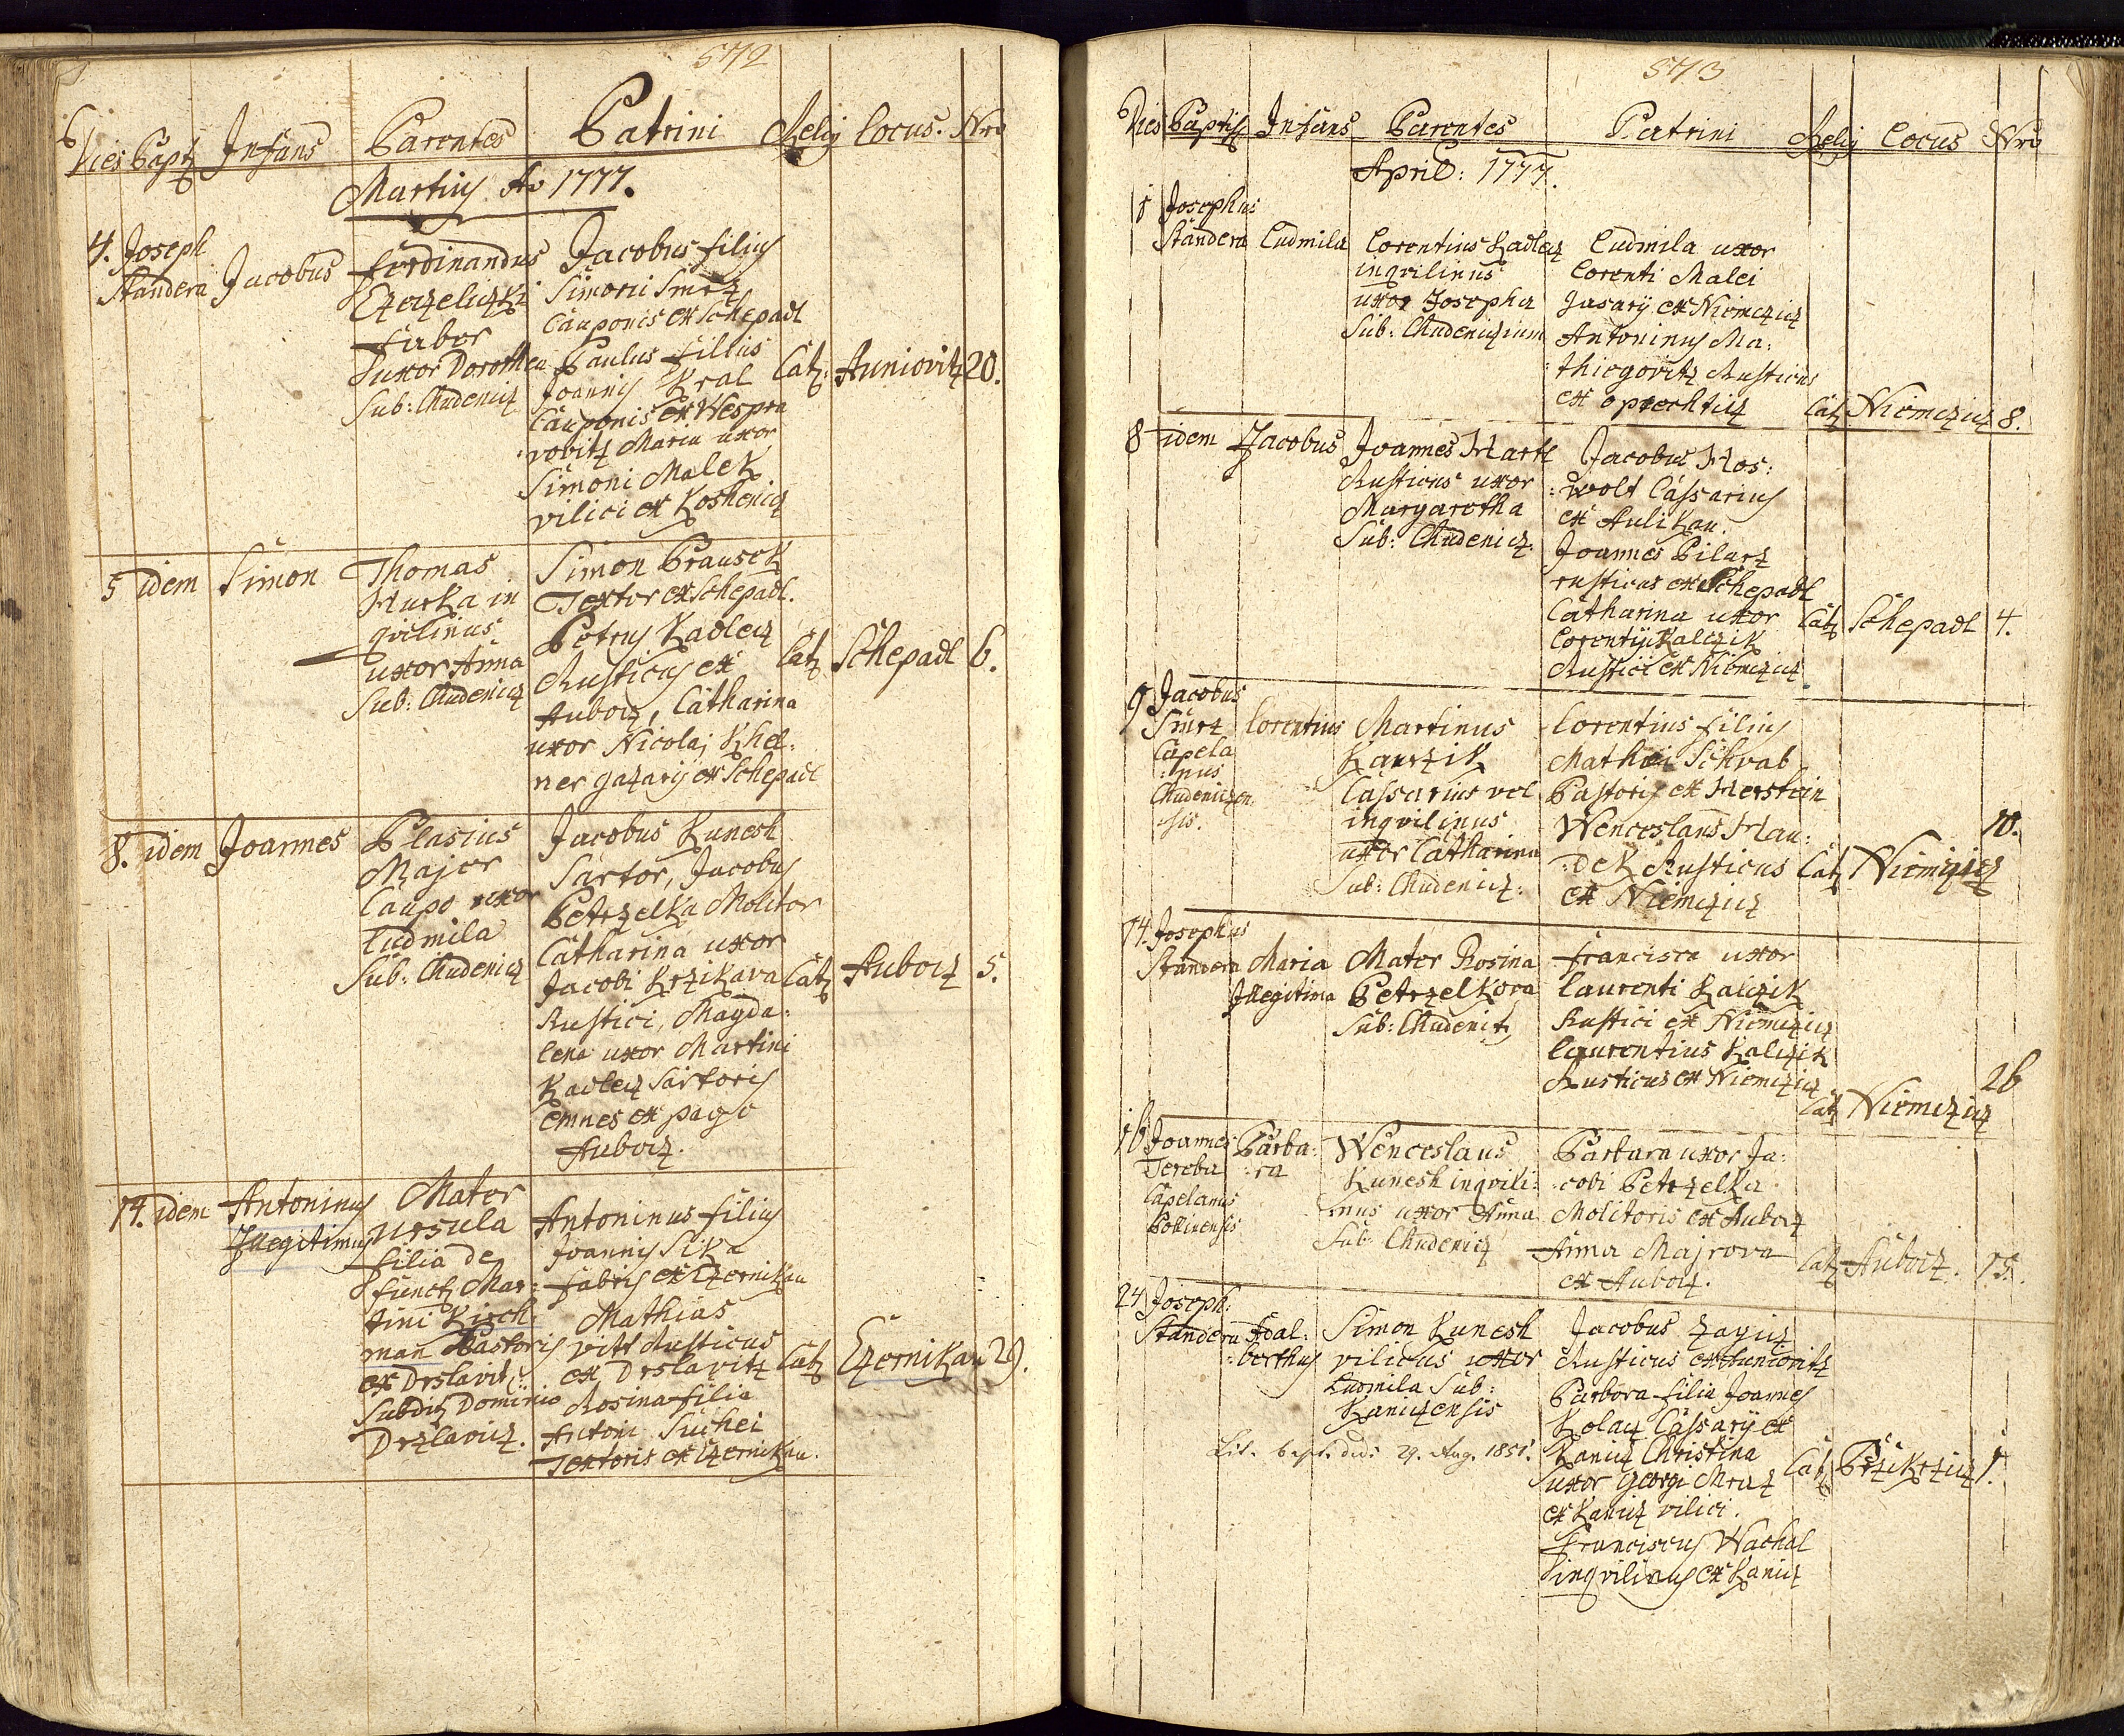 572
Dies Bapt Infans Parentes Patrini Relig Locus. Nro
Martius Ao 1777.
4. Joseph
Standera Jacobus
Ferdinandus
Faber
uxor Dorothea
Sub: Chudenicz
Jacobus filius
Simoni Smrz
Cauponis ex Schepadl
Paulus fillius
Joannis Kral
Cauponis ex Wespra
vovitz Maria uxor
Simoni Malek
vilici ex Koshenicz
Cat: Auniovitz 20.
5 idem Simon
Thomas
Hurka in
qvilinus
uxor Anna
Sub: Chudenicz
Simon Brausek
Textor ex Schepadl.
Petrus Kadlecz
Rusticus ex
Aubocz, Catharina
uxor Nicolai Khel:
ner gazarij ex Schepadl
Cat Schepadl 6.
8. idem Joannes
Blasius
Majer
Caupo uxor
Ludmila
Sub: Chudenicz
Jacobus Kunesh
Sartor, Jacobus
Petrzelka Molitor
Catharina uxor
Jacobi Krzikava
Rustici, Magda:
lena uxor Martini
Kadlecz Sartoris
omnes ex pago
Aubocz.
Cat Aubocz 5.
14. idem Antoninus
Illegitimus
Mater
Ursula
filia de
funct Mar:
tini Kirch
man Pastoris
ex Drslavitz
Subdit Dominio
Drzlavicz.
Antoninus filius
Joannis Sika
fabris ex Czernikau
Mathias
vitt Rusticus
ex Drslavitz
Rosina filia
Antoni Suchei
Textoris ex Czernikau.
Cat Czernikau 29.
573
Dies Baptis Infans Parentes Patrini Relig Locus Nro
April: 1777.
1 Josephus
Standera Ludmila
Lorentius Kadlecz
inqvilinus
uxor Josepha
Sub: Chudeniczium
Ludmila uxor
Lorenti Malei
gasarij ex Niemczicz
Antoninus Ma:
thiegovitz Rusticus
ex oprechticz
Cat Niemczicz 8.
8 idem Jacobus
Joannes Hartl
Rusticus uxor
Margaretha
Sub: Chudenicz.
Jacobus Hos:
wolt Cassarius
ex Aulikau.
Joannes Pilarz
rusticus ex Schepadl
Catharina uxor
Lorentij Kalczik
Rustici ex Niemczicz
Cat Schepadl 4.
9 Jacobus
Smrz
Capela
nus
Chudeniczen
sis.
Lorentius
Martinus
Kaurzik
Cassarius vel
inqvilinus
uxor Catharina
Sub: Chudenicz:
Lorentius filius
Mathei Schvab
Pastoris ex Herstein
Wenceslaus Hau:
dek Rusticus
ex Niemczicz
Cat Niemczicz
10.
14. Josephus
Standera Maria
Illegitima
Mater Rosina
Petrzelkova
Sub: Chudenitz
Francisca uxor
Laurenti Kalczik
Rustici ex Niemczicz
Laurentius Kalczik
Rusticus ex Niemczicz
Cat Niemczicz
26
16 Joannes
Tereba
Capelanus
Polinensis
Barba:
ra
Wenceslaus
Kunesh inqvili:
nus uxor Anna
Sub: Chudenicz
Barbara uxor Ja:
cobi Petrzelka
Molitoris ex Aubocz
Anna Majrova
ex Aubocz.
Cat Aubocz. 15.
24 Joseph:
Standera Adal:
berthus
Simon Kunesh
vilicus uxor
Ludmila Sub:
Kaniczensis
Lit. bapt. ded: 29. Aug. 1851.
Jacobus Zagicz
Rusticus ex Auniovitz
Barbora filia Joannes
Kolacz Cassarij ex
Kanicz Christina
uxor Georgi Mraz
ex Kanicz vilici.
Franciscus Wachal
inqvilinus ex Kanicz
Cat Przikrzicz 1.